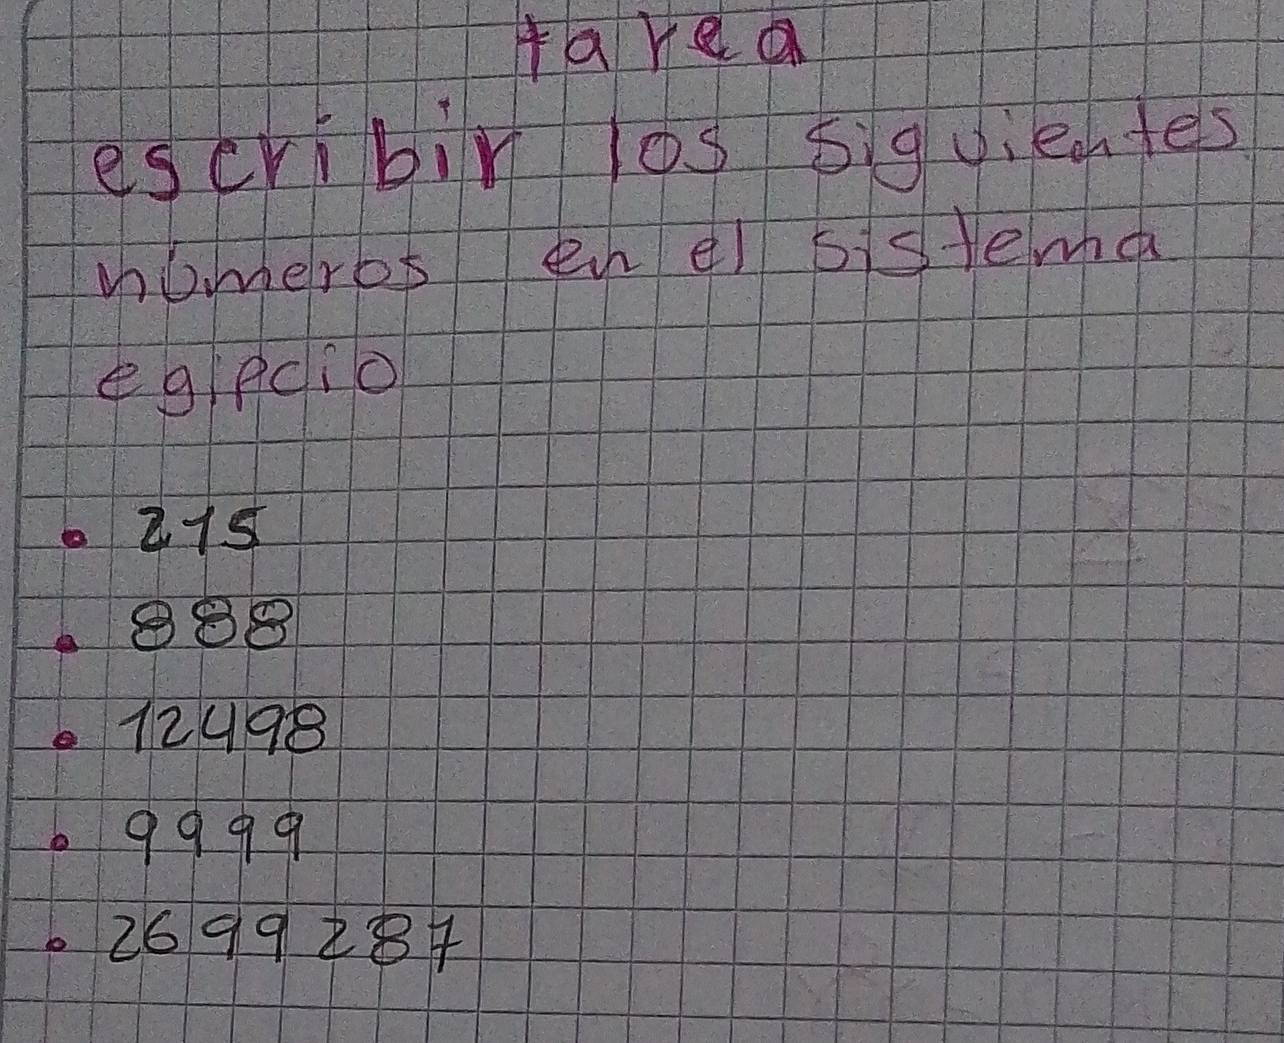 tarea
escribir los siguientes
números en el sistema
egipcio
• 215
• 888
• 12498
• 9999
• 2699287